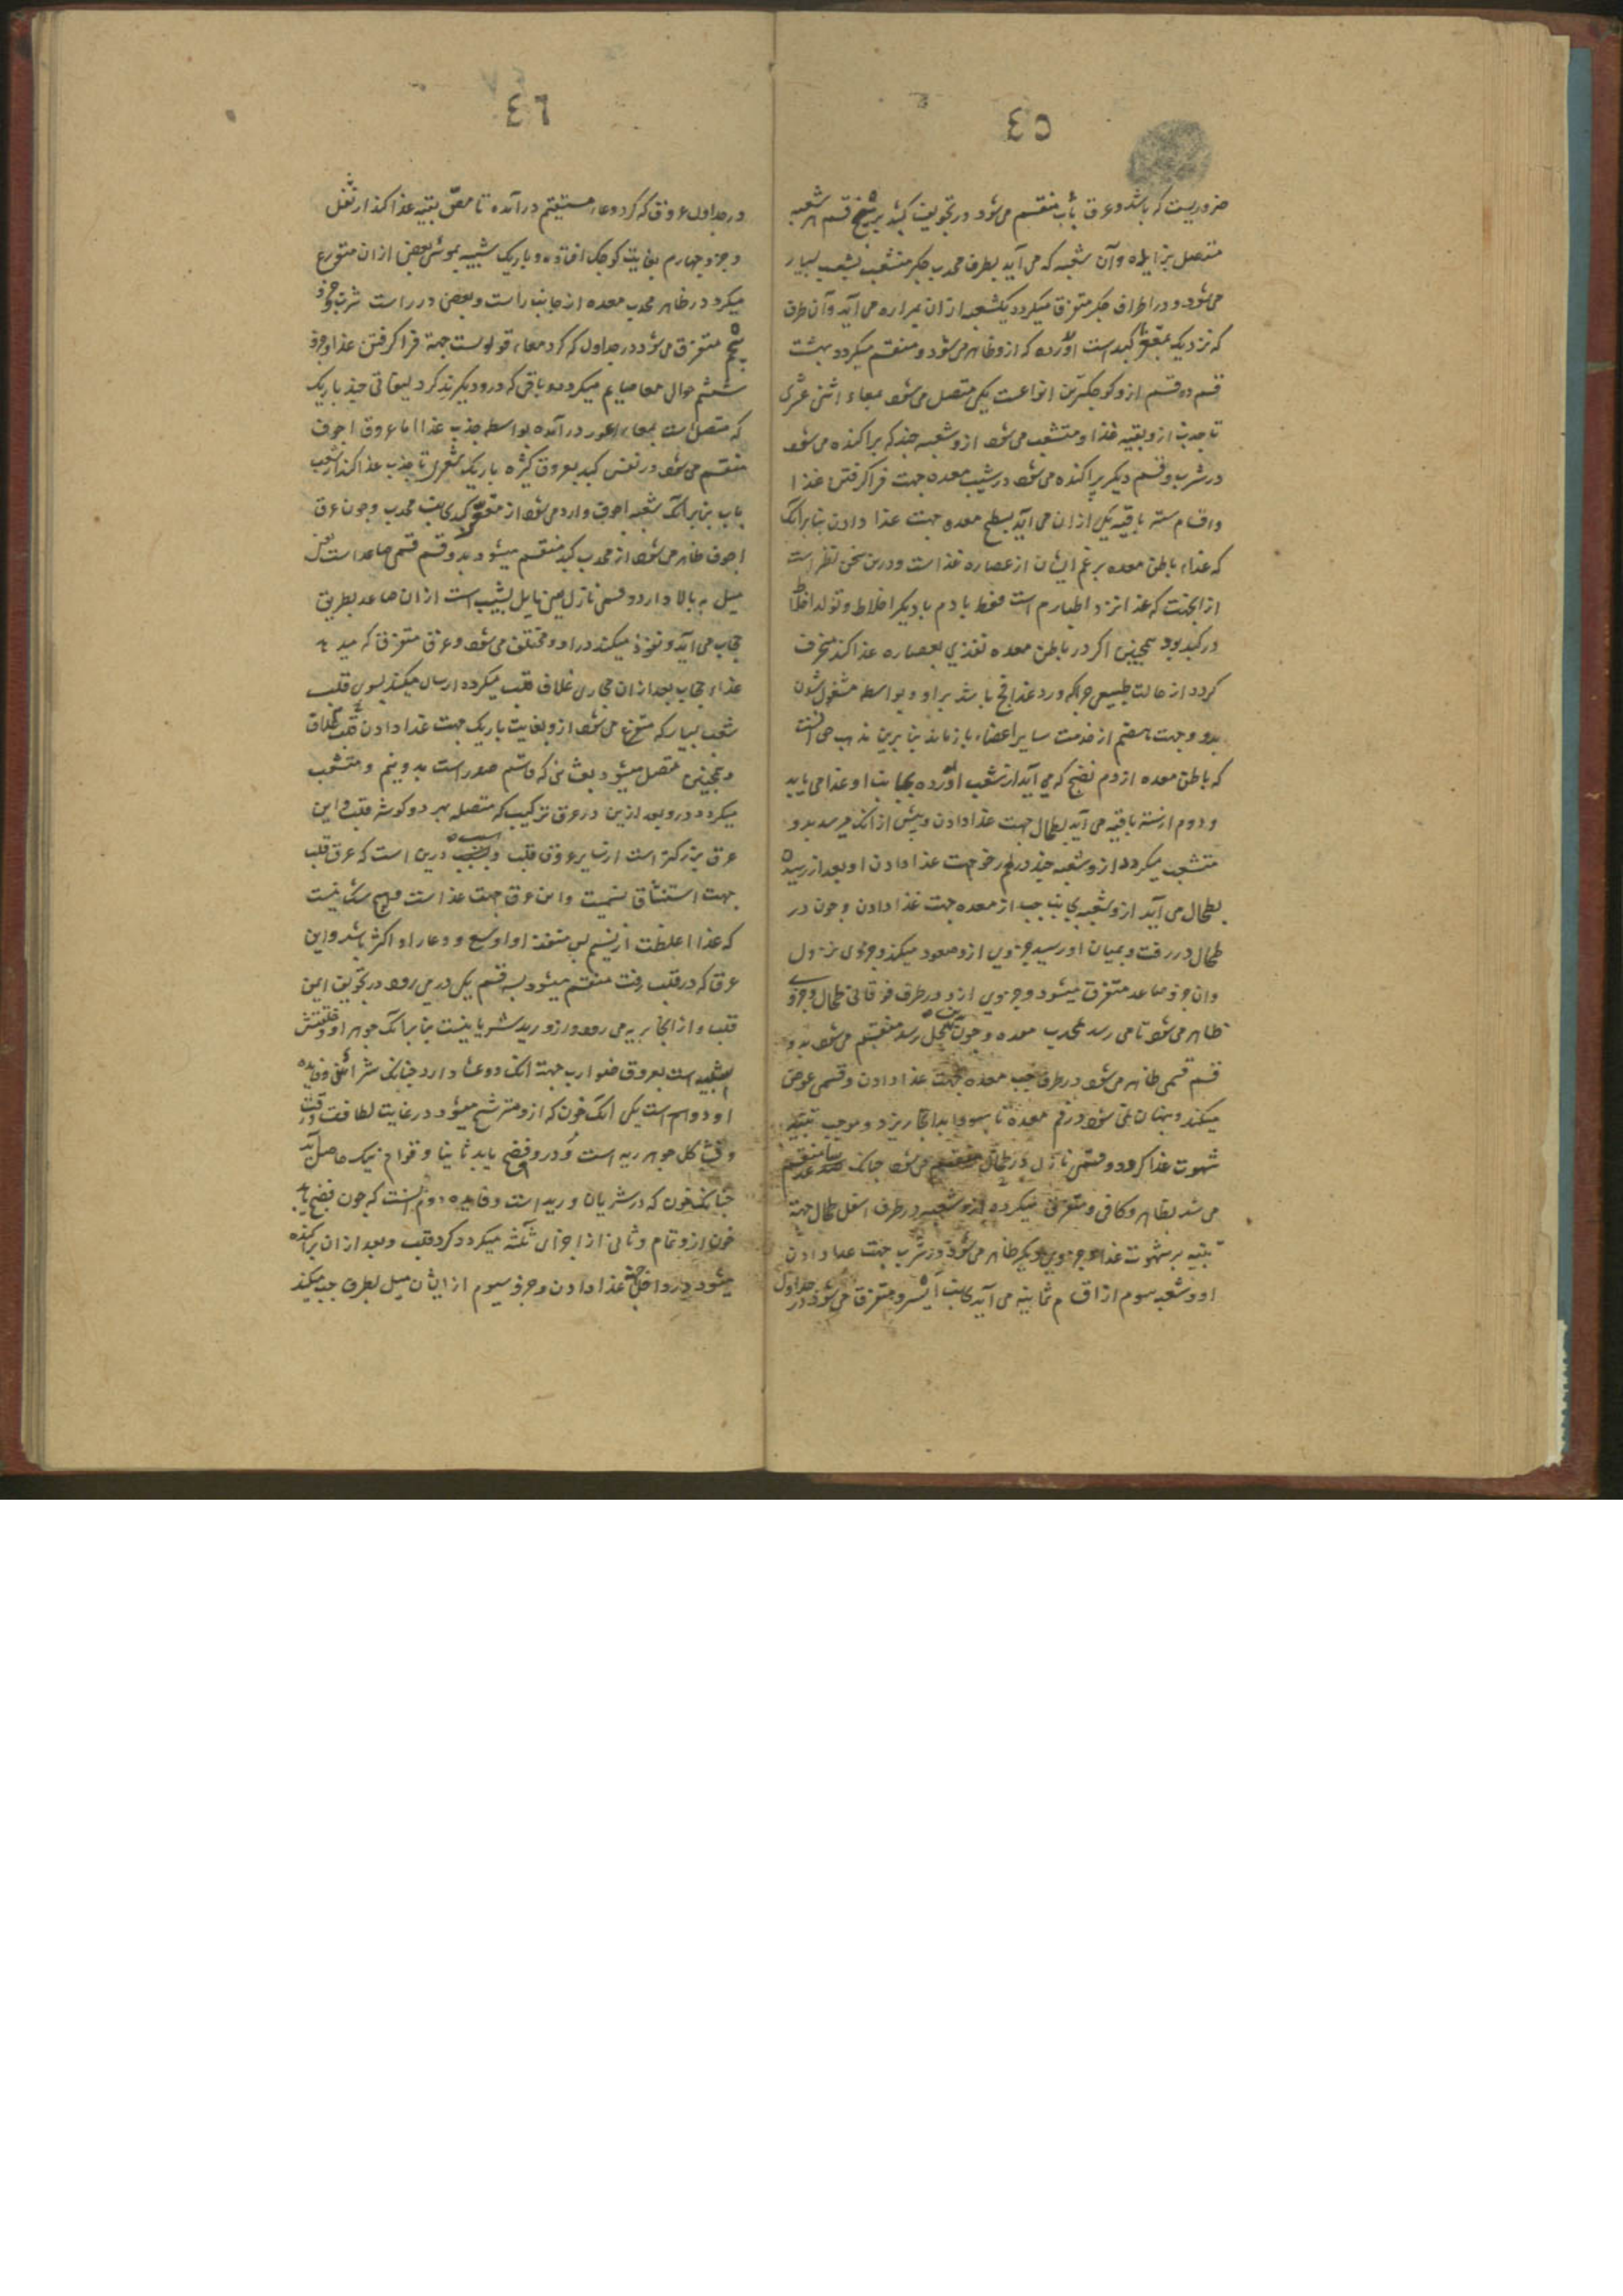 ٤٥
ضروریست که باشد و عرق باب منقسم می‌شود در تجویف کبد بر پنج قسم هر شعبه
متصل بزایده و آن شعبه که می‌آید بطرف محدب جکر منشعب بشعب بسیار
می‌شود و در اطراف جکر متفرق میکردد یکشعبه از ان بمراره می‌آید و آن طرف
که نزدیک بمقعر کبد است اورده که ازو ظاهر می‌شود و منقسم میکردد بهشت
قسم دو قسم ازو کوجکترین انواعست یکی متصل می‌شود بمعاء اثنی عشری
تا جذب ازو بقیه غذا و متشعب می‌شود ازو شعبه جند که پراکنده می‌شود
در شرب و قسم دیکر پراکنده می‌شود در شیب معده جهت فرا کرفتن غذا
و اقسام سته باقیه یکی از ان می‌آید بسطح معده جهت غذا دادن بنابر آنک
که غذاء باطن معده بزعم ایشان از عصاره غذاست و درین سخن نظر است
از انجهت که غذا نزد اطبا دم است فقط یا دم با دیکر اخلاط و تولد اخلاط
در کبد بود همجنین اکر در باطن معده تغذی بعصاره غذا کند منحرف
کردد از حالت طبیعی جراکه ورد غذا فج باشد بر او و بواسطه مشغول شدن
بدو و جهت هضم از خدمت سایر اعضاء باز ماند بنا برین مذهب حق آنست
که باطن معده از دم نضج که می‌آید از شعب اورده بجانب او غذا می‌یابد
و دوم از سته باقیه می‌آید بطحال جهت غذا دادن و پیش از انک میرسد بدو
متشعب میکردد ازو شعبه جند در لحم رخو جهت غذا دادن او و بعد از رسیدن
بطحال می‌آید ازو شعبه بجانب جب از معده جهت غذا دادن و جون در
طحال در رفت و بمیان او رسید جزوی ازو صعود میکند و جزوی نزول
و ان جزو صاعد متفرق میشود و جزوی ازو در طرف فوقانی طحال و جزوی
ظاهر می‌شود تا می رسد بمحدب معده و جون بمحل رسد منقسم می‌شود بدو
قسم قسمی ظاهر می‌شود در طرف جب معده جهت غذا دادن و قسمی غوص
میکند در فم معده تا سودا بدانجا ریزد و موجب تنبیه
شهوت غذا کردد و قسمی نازل در طحال منقسم می‌شود جنانک صاعد منقسم
می شد بظاهر و کافی و متفرق میکردد ازو شعبه در طرف اسفل طحال جهة
تنبیه بر شهوت غذا و جزوی دیکر ظاهر می‌شود در ثرب جهت غذا دادن
او و شعبه سوم از اقسام ثمانیه می‌آید بجانب ایسر و متفرق می‌شود در جداول
٤٦
در جداول عروق که کرد معاء مستقیم درآمده تا مص بقیه غذا کند از ثفل
و جزو جهارم بغایت کوجک افتاده و باریک شبیه بموی بعضی ازان متوزع
میکردد در ظاهر محدب معده از جانب راست و بعضی در راست ثرب و جزو
پنجم متفرق می‌شود در جداول که کرد معاء قولونست جهة فرا کرفتن غذا و جزو
ششم حوالی معا صایم میکردد و باقی که درو دیکرند کرد لفایفی جند باریک
که متصل است بمعاء اعور درآمده بواسطه جذب غذا اما عروق اجوف
منقسم می‌شود در نفس کبد بعروق کثیره باریک تا جذب غذا کند از شعب
باب بنابر آنک شعبه اجوف وارد می‌شود از مقعر کبد بجانب محدب و جون عرق
اجوف ظاهر می‌شود از محدب کبد منقسم میشود بدو قسم قسمی صاعد است یعنی
میل به بالا دارد و قسمی نازل یعنی مایل بشیب است ازان صاعد بطریق
حجاب می‌آید و نفوذ میکند در او و مختلف می‌شود دو عرق متفرق که میدهد
غذاء حجاب بعد ازان محاذی غلاف قلب میکردد ارسال میکند بسوی قلب
شعب بسیار که متفرع می‌شود ازو بغایت باریک جهت غذا دادن غلاف
و همجنین متصل میشود بغشائی که قاسم صدر است بدو نیم و متشعب
میکردد درو بعد ازین در عرق ترکیب که متصله بهر دو کوشه قلب و این
عرق بزرکترست از سایر عروق قلب و سبب درین است که عرق قلب
جهت استنشاق نسیمست و این عرق جهت غذاست و هیج شک نیست
که غذا اغلظست از نسیم پس منفذ او اوسع و وعاء او اکثر باشد و این
عرق که در قلب رفت منقسم میشود بسه قسم یکی در می رود در تجویف ایمن
قلب و از انجا بریه می رود و ازو ورید شریانیست بنا بر آنک جوهر او و خلقتش
شبیه است بعروق ضوارب جهة انک دو غشاء دارد جنانک شرائین و فایده
او دو است یکی آنک خون که ازو مترشح میشود در غایت لطافت و رقت
و مشاکل جوهر ریه است و درو نضج یابد ثانیا و قوام نیک حاصل آید
جنانک خون که در شریان وریدیست و فایده دوم آنست که جون نضج یابد
خون ازو تمام و ثانی از اجزای ثلثه میکردد کرد قلب و بعد ازان پراکنده
میشود در داخل جهة غذا دادن و جزو سیوم از ایشان میل بطرف جب میکند